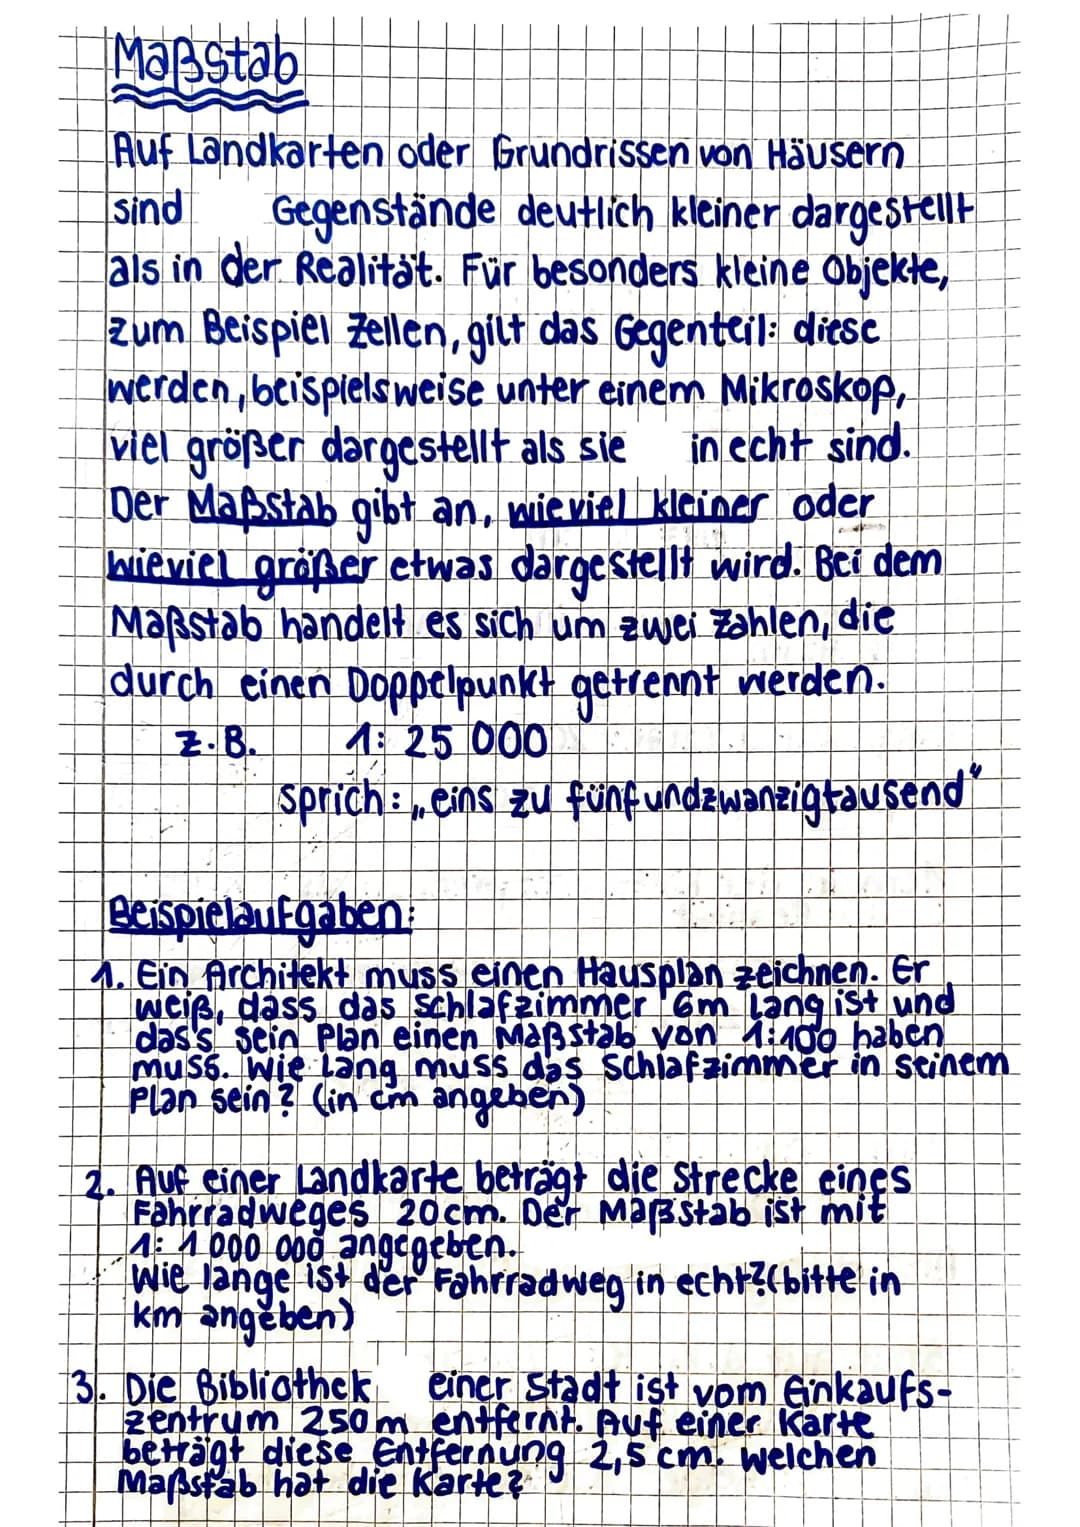 Maßstab
Auf Landkarten oder Grundrissen von Häusern
sind Gegenstände deutlich kleiner dargestellt
als in der Realität. Für besonders kleine Objekte,
zum Beispiel Zellen, gilt das Gegenteil: diese
werden, beispielsweise unter einem Mikroskop,
viel größer dargestellt als sie in echt sind.
Der Maßstab gibt an, wieviel kleiner oder
wieviel größer etwas dargestellt wird. Bei dem
Maßstab handelt es sich um zwei Zahlen, die
durch einen Doppelpunkt getrennt werden.
z.B. 1: 25 000
sprich: „eins zu fünfundzwanzigtausend"
Beispielaufgaben:
1. Ein Architekt muss einen Hausplan zeichnen. Er
weiß, dass das Schlafzimmer 6m lang ist und
dass sein Plan einen Maßstab von 1:100 haben
muss. Wie lang muss das Schlafzimmer in seinem
Plan sein? (in cm angeben)
2. Auf einer Landkarte beträgt die Strecke eines
Fahrradweges 20cm. Der Maßstab ist mit
1: 1 000 000 angegeben.
Wie lange ist der Fahrradweg in echt? (bitte in
km angeben)
3. Die Bibliothek einer Stadt ist vom Einkaufs-
zentrum 250m entfernt. Auf einer Karte
beträgt diese Entfernung 2,5 cm. Welchen
Maßstab hat die Karte?